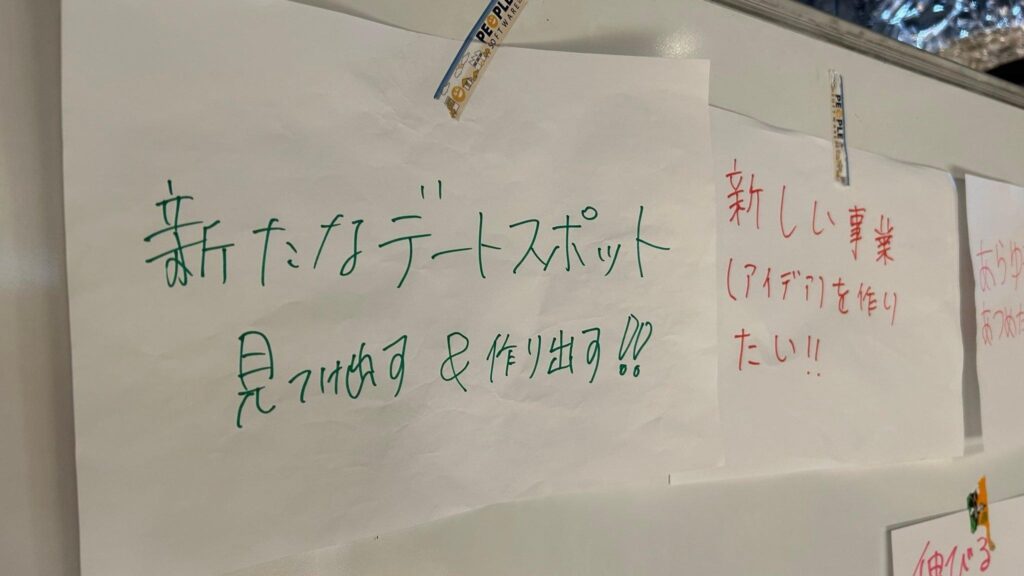 新たなデートスポット
見つけ出す & 作り出す!!
新しい事業
(アイデア)を作り
たい!!
あらゆ
あつめた
伸びる
PEOPLE
SOFTWARE
PEOPLE